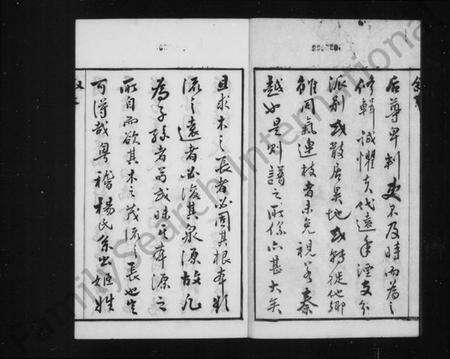 后尊卑判
更不及時而為之
修輯誠懼久代遠年湮支分
派別或散居異地或轉徙他鄉
雖同氣連枝者未免視為秦
越如是則譜之所係亦甚大矣
且求木之長者必固其根本欲
流之遠者必浚其泉源故凡
為子孫者可或昧本源之
所自而欲其木之茂流之長也
可得哉粵稽楊氏系出姬姓
FamilySearch International